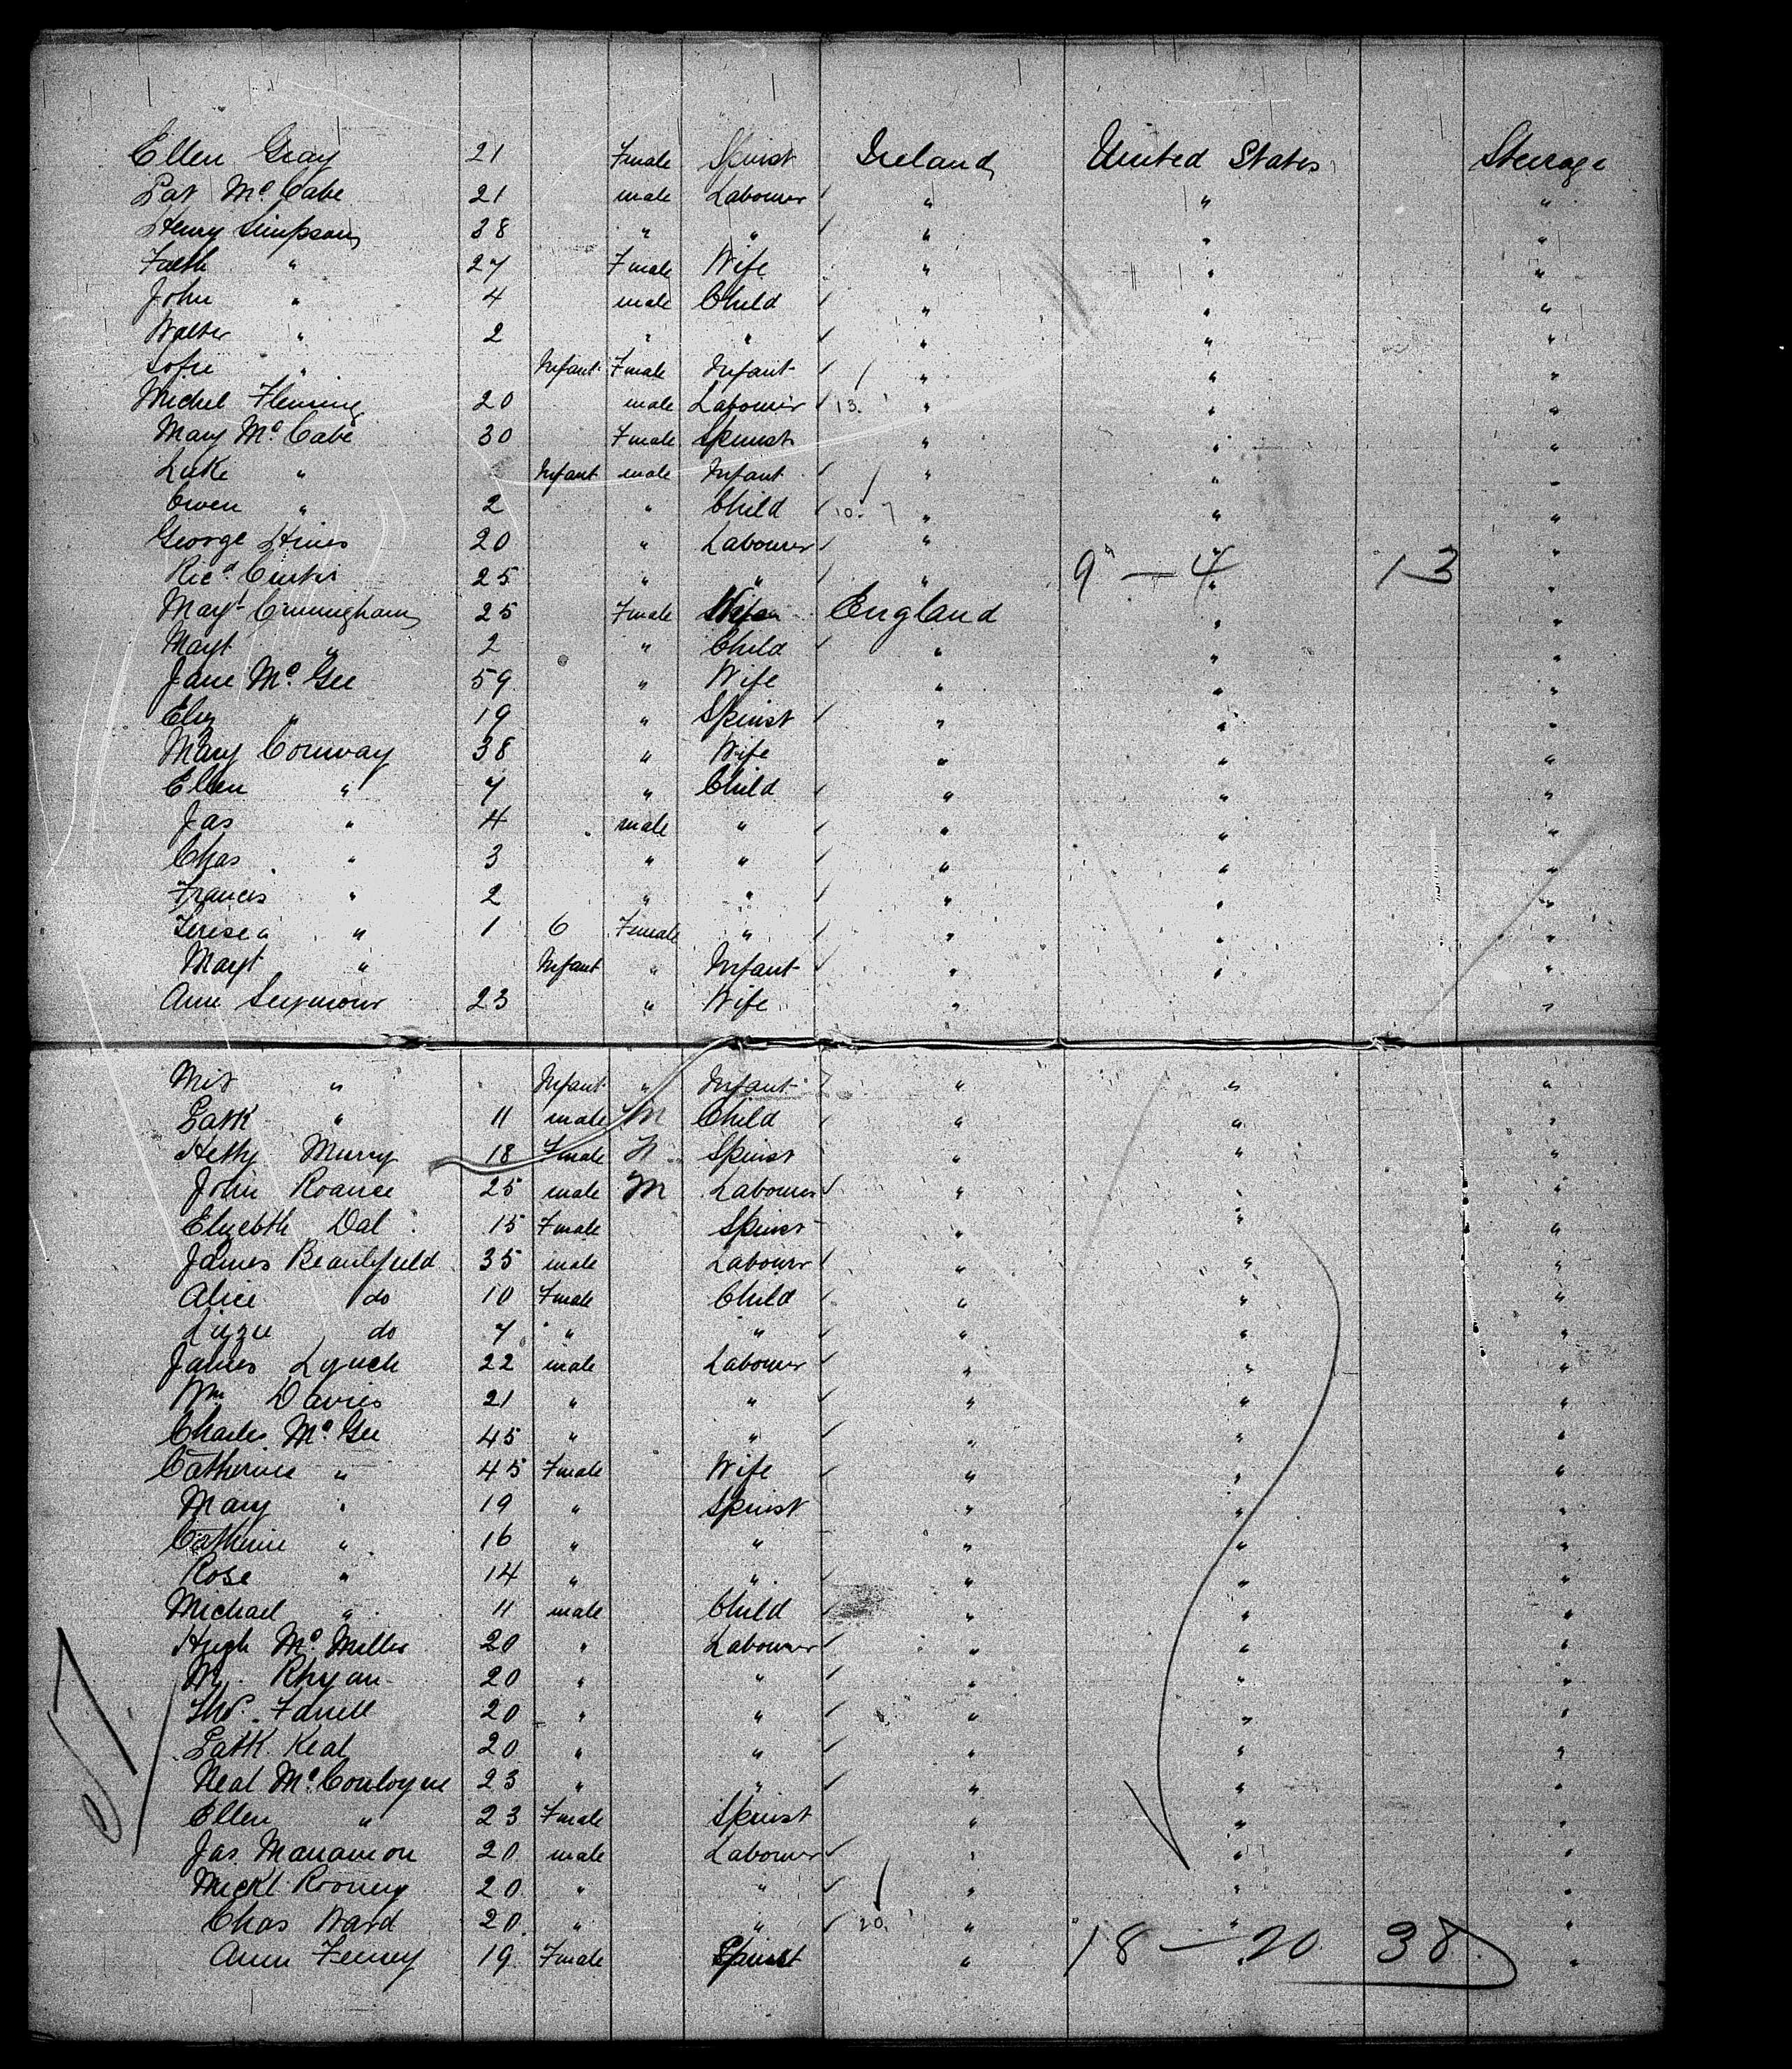 Ellen Gray 21 Female Spinst Ireland United States Steerage
Pat Mc Cabe 21 male Labourer " " "
Henry Simpson 38 " " " " "
Faith " 27 Female Wife " " "
John " 4 male Child " " "
Walter " 2 " " " " "
Sofie " Infant Female Infant " " "
Michel Fleming 20 male Labourer 13. " " "
Mary Mc Cabe 30 Female Spinst " " "
Luke " Infant male Infant " " "
Owen " 2 " Child 10. " " "
George Hines 20 " Labourer " " "
Ricd Curtis 25 " " " 9 — 4 " 13 "
Mayt Cunningham 25 Female England " "
Mayt " 2 " Child " " "
Jane Mc Gee 59 " Wife " " "
Eliz " 19 " Spinst " " "
Mary Conway 38 " Wife " " "
Ellen " 7 " Child " " "
Jas " 4 male " " " "
Chas " 3 " " " " "
Francis " 2 " " " " "
Teresea " 1 6 Female " " " "
Mayt " Infant " Infant " " "
Ann Seymour 23 " Wife " " "
" Infant " Infant " " "
Patk " 11 male M Child " " "
Hetty Murry 18 Female Spinst " " "
John Roance 25 male M Labourer " " "
Elizebth Dal 15 Female Spinst " " "
James Beautyfeld 35 male Labourer " " "
Alice do 10 Female Child " " "
Lizzie do 7 " " " " "
James Lynch 22 male Labourer " " "
Wm Davies 21 " " " " "
Charles Mc Gee 45 " " " " "
Catherine " 45 Female Wife " " "
Mary " 19 " Spinst " " "
Catherine " 16 " " " " "
Rose " 14 " " " " "
Michael " 11 male Child " " "
Hugh Mc Miller 20 " Labourer " " "
Rhyan 20 " " " " "
Thos. Farrell 20 " " " " "
Patk. Keal 20 " " " " "
Neal Mc 23 " " " " "
Ellen " 23 Female Spinst " " "
Jas Manamon 20 male Labourer " " "
Mickl Rooney 20 " " " " "
Chas Ward 20 " " 20. " " "
Ann Feeney 19 Female Spinst " 18 — 20 38 "